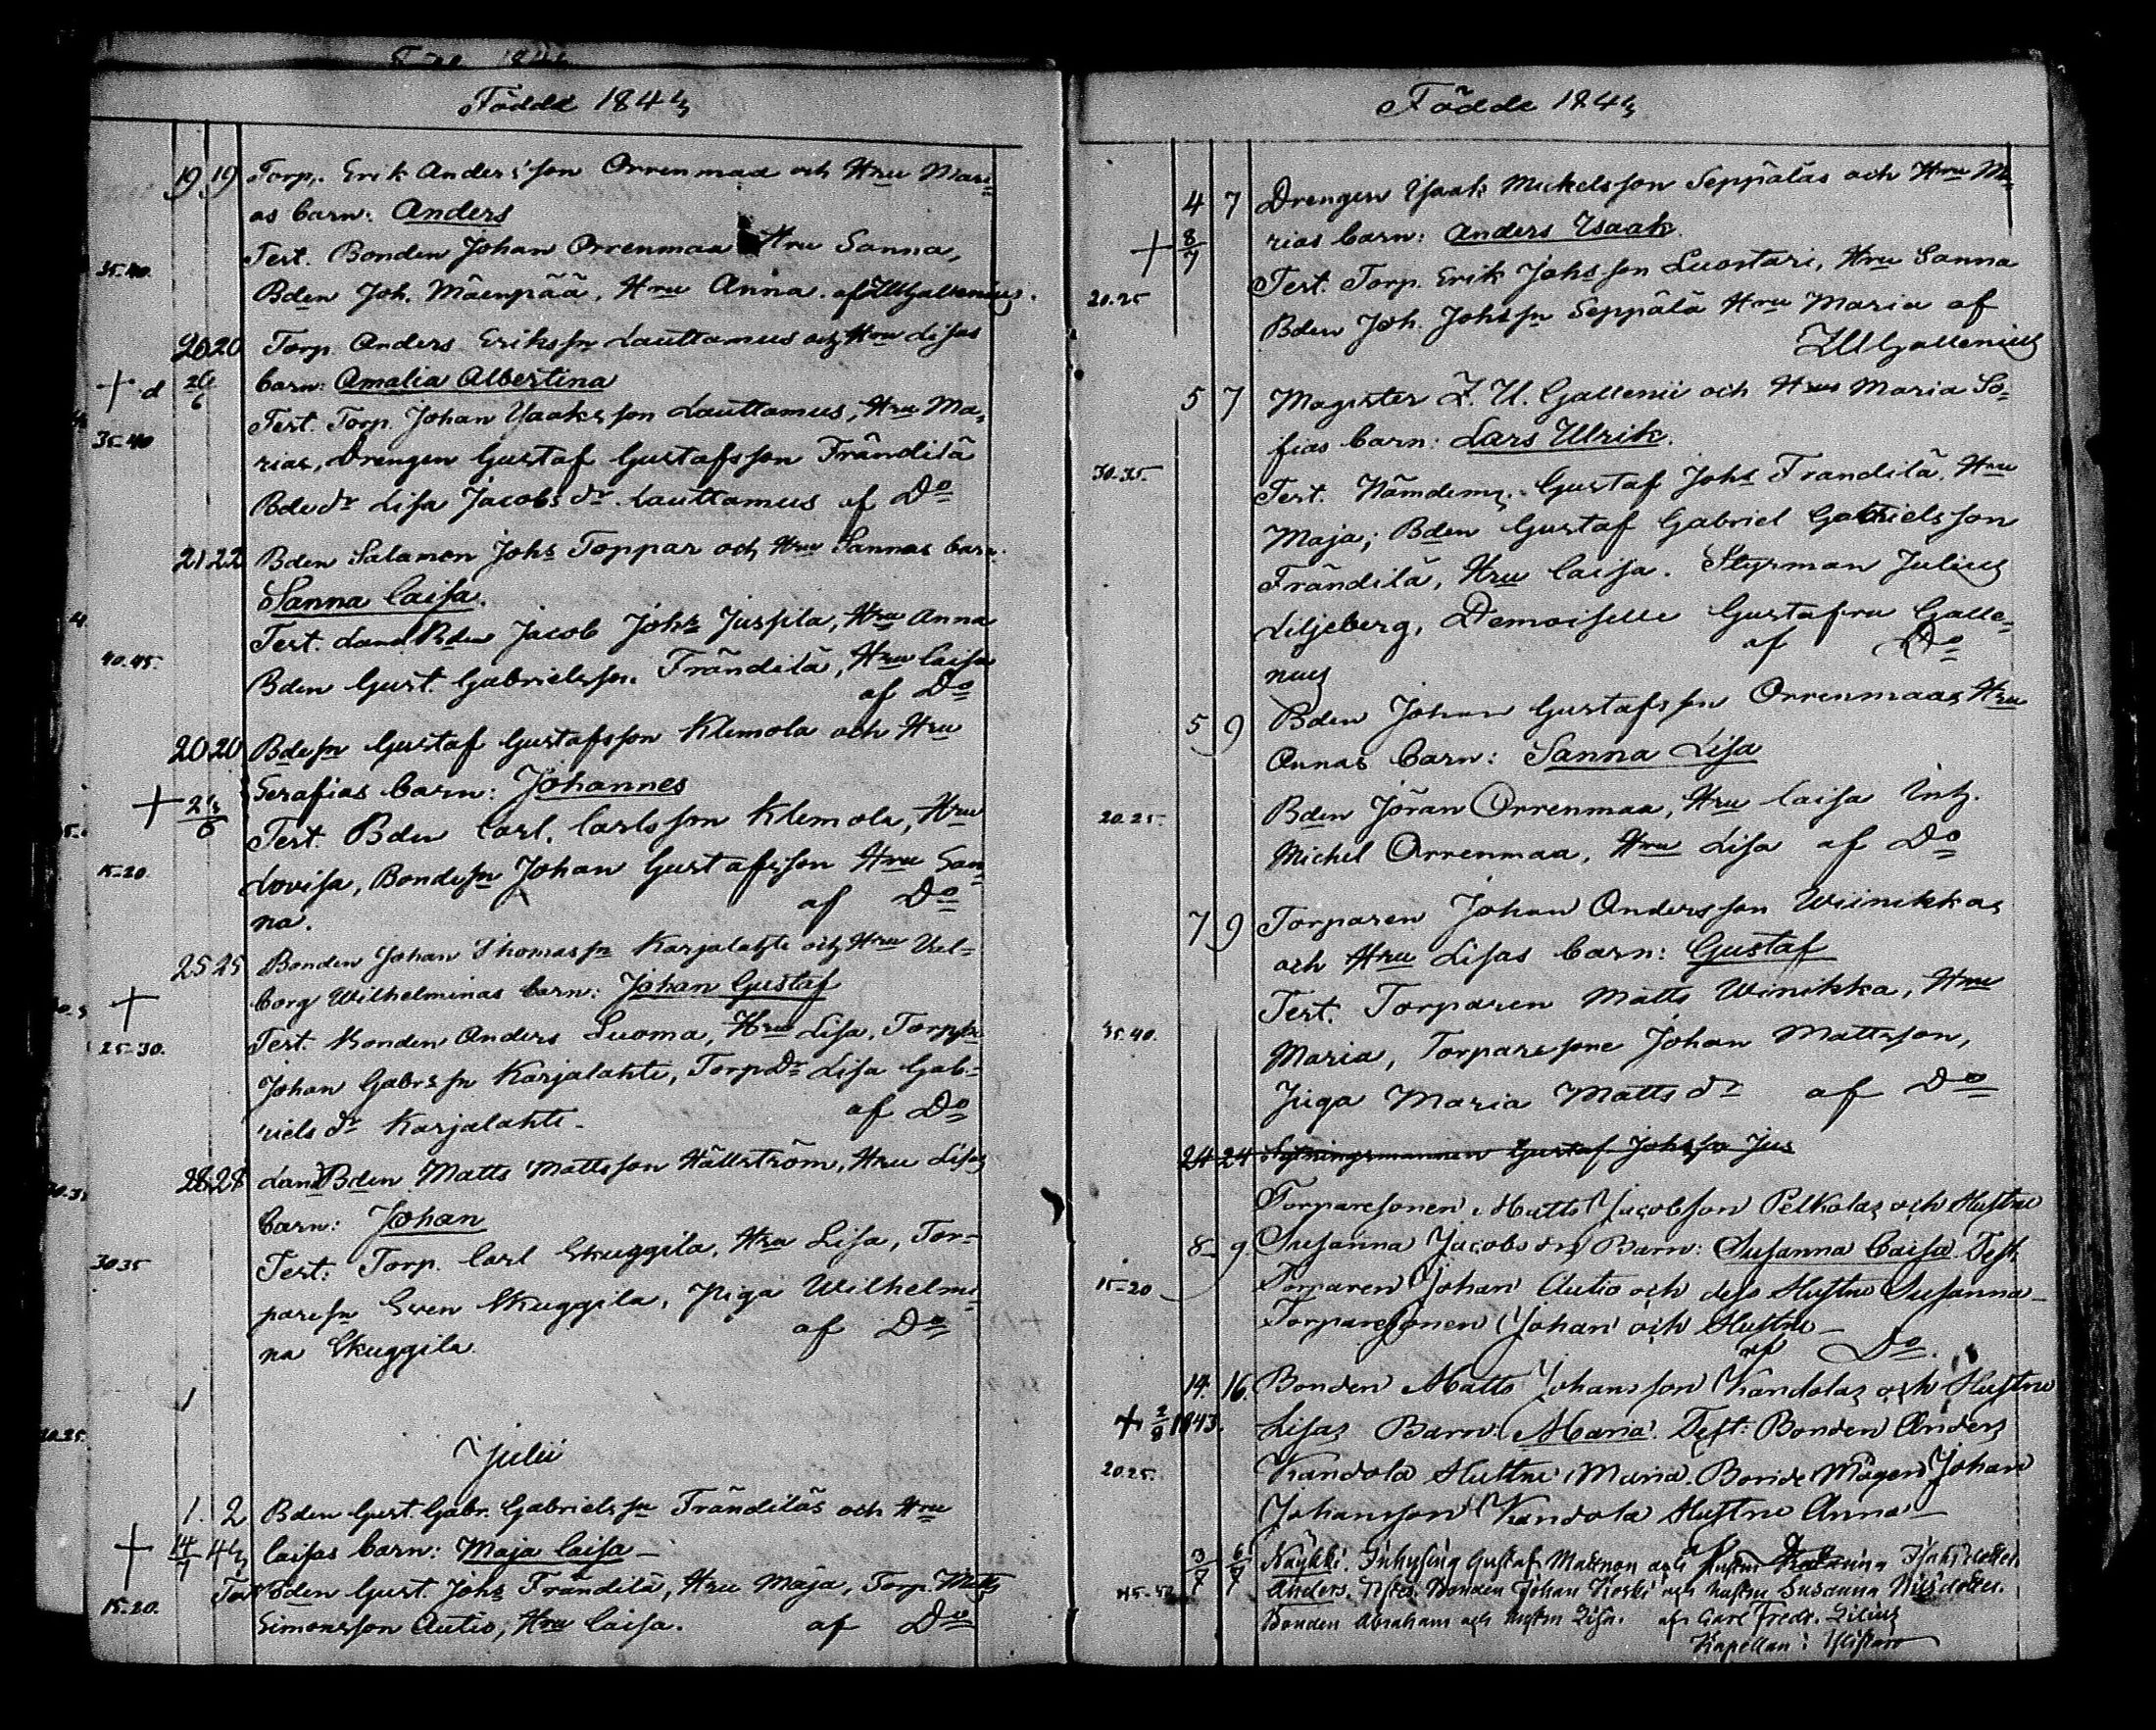 Födde 1842
19 19 Torp. Erik Anders'son Orrenmaa och Hru Mari=
as barn: Anders
Test. Bonden Johan Orrenmaa Hru Sanna,
35-40.
Bden Joh. Mäenpää, Hru Anna. af LUGallenius.
20 20 Torp. Anders Eriksson Lauttamus och Hru Lisas
+ d 26/6 barn: Amalia Albertina
Test. Torp. Johan Isaaksson Lauttamus, Hru Ma=
35-40
rias, Drengen Gustaf Gustafsson Frändilä
Bdedr Lisa Jacobsdr Lauttamus af Do
21 22 Bden Salamon Johs Toppar och Hru Sannas barn:
Sanna Caisa.
Test. Land Bden Jacob Johs Juspila, Hru Anna
40.45.
Bden Gust. Gabrielssn. Frändilä, Hru Caisa
af Do
20 20 Bdesn Gustaf Gustafsson Klemola och Hru
Serafias barn: Johannes
+
Test. Bden Carl. Carlsson Klemola, Hru
15-20.
Lovisa, Bondesn Johan Gustafsson Hru San=
na. af Do
25 25 Bonden Johan Thomassn Karjalahti och Hru Val=
+ borg Wilhelminas barn: Johan Gustaf
Test. Bonden Anders Luoma, Hru Lisa, Torpsn
25-30.
Johan Gabrssn Karjalahti, Torpdr Lisa Gab=
rielsdr Karjalahti. af Do
28 28 Land Bden Matts Mattsson Hällström, Hru Lisas
barn: Johan
Test: Torp. Carl Skuggila, Hru Lisa, Tor=
30 35
paresn Sven Skuggila, Piga Wilhelmi=
na Skuggila. af Do
1
Julii
1. 2 Bden Gust. Gabr. Gabrielssn Frändiläs och Hru
+ 14/7 42 Caisas barn: Maja Caisa
Test Bden Gust. Johs Frändilä, Hru Maja, Torp. Matts
15-20.
Simonsson Autio, Hru Caisa. af Do
Födde 1842
4 7 Drengen Isaak Mickelsson Seppäläs och Hru Ma=
+ 8/7 rias barn: Anders Isaak.
Test. Torp. Erik Johsson Luostari, Hru Sanna
20.25
Bden Joh. Johssn Seppälä Hru Maria af
LUGallenius
5 7 Magister L. U. Gallenii och Hrus Maria So=
fias barn: Lars Ulrik.
30-35.
Test. Nämdem. Gustaf Johs Frändilä. Hru
Maja; Bden Gustaf Gabriel Gabrielsson
Frändilä, Hru Caisa. Styrman Julius
Liljeberg, Demoiselle Gustafva Galle=
nius af Do
5 9 Bden Johan Gustafssn Orrenmaas Hru
Annas barn: Sanna Lisa
20.25.
Bden Jöran Orrenmaa, Hru Caisa Inh.
Michel Orrenmaa, Hru Lisa af Do
7 9 Torparen Johan Andersson Wiinikkas
och Hru Lisas barn: Gustaf
Test. Torparen Matts Winikka, Hru
35.40.
Maria, Torparesone Johan Mattsson,
Piga Maria Mattsdr af Do
24 24 Sytningsmannen Gustaf Johssn Jus
Torparesonen Matts Jacobson Pelkolas och Hustru
8 9 Susanna Jacobsdrs Barn: Susanna Caisa. Test.
15-20
Torparen Johan Autio och dess Hustru Susanna
Torparesonen Johan och Hustru
af Do.
14. 16. Bonden Matts Johansson Kandolas och Hustru
+ 2/8 1843. Lisas Barn: Maria. Test: Bonden Anders
20.25.
Kandola Hustru Maria. Bonde Mågen Johan
Johansson Kandola Hustru Anna
3/7 6/7 Näykki. Inhysing Gustaf Mattson och Hustru
Anders. Test. Bonden Johan Koski och hustru Susanna
Bonden Abraham och hustru Lisa. af Carl Fredr. Lilius
Kapellan i Ylistaro